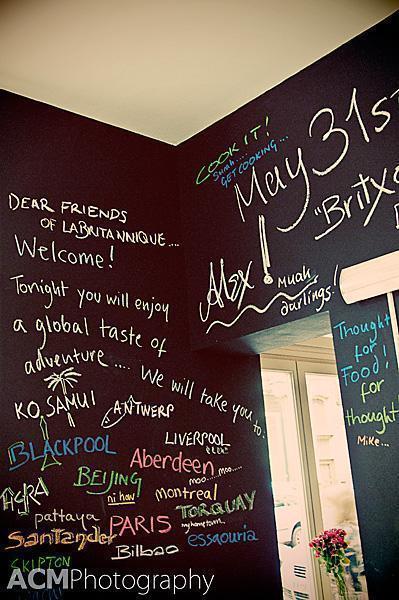 DEAR FRIENDS
OF LABRITANNIQUE...
Welcome!
Tonight you will enjoy
a global taste of
adventure.... We will take you to:
KO SAMUI
ANTWERP
LIVERPOOL
BLACKPOOL
Aberdeen
moo...moo...
BEIJING
ni hau
montreal
AGRA
TORQUAY
my hometown..
pattaya
Santander
PARIS
essaouria
Bilbao
SKIPTON
COOK IT!
Sarah...
GET COOKING...
May 31st
"Britxe
Alex!
MUAH
darlings!
Thought
for
Food!
for
thought
Mike...
ACMPhotography